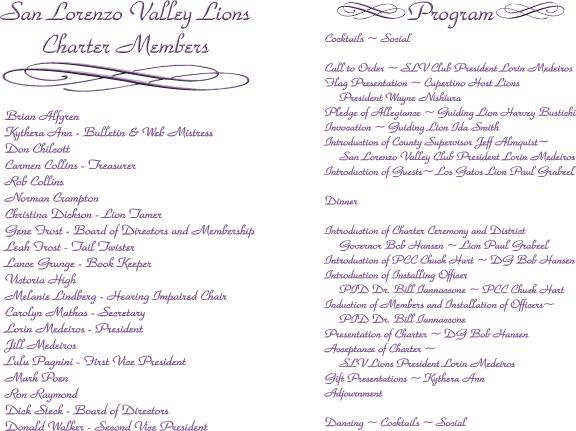 San Lorenzo Valley Lions
Charter Members
Brian Alfgren
Kythera Ann - Bulletin & Web Mistress
Don Chilcott
Carmen Collins - Treasurer
Rob Collins
Norman Crampton
Christina Dickson - Lion Tamer
Gene Frost - Board of Directors and Membership
Leah Frost - Tail Twister
Lance Grunge - Book Keeper
Victoria High
Melanie Lindberg - Hearing Impaired Chair
Carolyn Mathas - Secretary
Lorin Medeiros - President
Jill Medeiros
Lulu Pagnini - First Vice President
Mark Poen
Ron Raymond
Dick Steck - Board of Directors
Donald Walker - Second Vice President
Program
Cocktails ~ Social
Call to Order ~ SLV Club President Lorin Medeiros
Flag Presentation ~ Cupertino Host Lions
President Wayne Nishiura
Pledge of Allegiance ~ Guiding Lion Harvey Bustichi
Invocation ~ Guiding Lion Ida Smith
Introduction of County Supervisor Jeff Almquist~
San Lorenzo Valley Club President Lorin Medeiros
Introduction of Guests~ Los Gatos Lion Paul Grabeel
Dinner
Introduction of Charter Ceremony and District
Governor Bob Hansen ~ Lion Paul Grabeel
Introduction of PCC Chuck Hart ~ DG Bob Hansen
Introduction of Installing Officer
PID Dr. Bill Iannaccone ~ PCC Chuck Hart
Induction of Members and Installation of Officers~
PID Dr. Bill Iannaccone
Presentation of Charter ~ DG Bob Hansen
Acceptance of Charter ~
SLV Lions President Lorin Medeiros
Gift Presentations ~ Kythera Ann
Adjournment
Dancing ~ Cocktails ~ Social